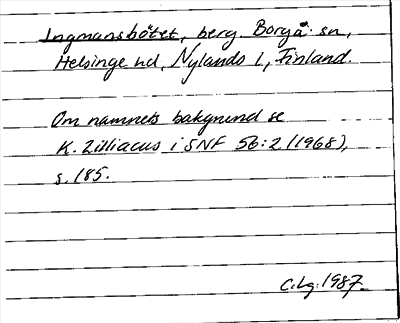 Ingmansbötet, berg. Borgå sn,
Helsinge hd, Nylands l, Finland.
Om namnets bakgrund se
K. Zilliacus i SNF 56:2 (1968),
s. 185.
C.Lg. 1987